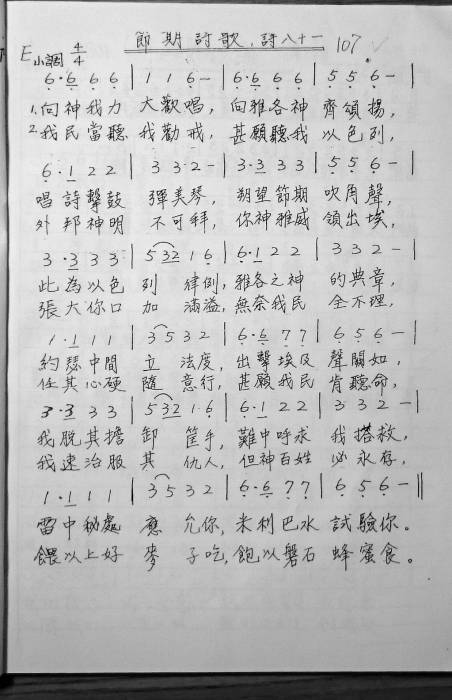 節期詩歌．詩八十一 107
E小調 4/4
6·6 6 6 | 1 1 6 - | 6·6 6 6 | 5 5 6 - |
1.向神我力 大歡唱，向雅各神 齊頌揚，
2.我民當聽 我勸戒，甚願聽我 以色列，
6·1 2 2 | 3 3 2 - | 3·3 3 3 | 5 5 6 - |
唱詩擊鼓 彈美琴，朔望節期 吹角聲，
外邦神明 不可拜，你神雅威 領出埃，
3·3 3 3 | 5 32 1 6 | 6·1 2 2 | 3 3 2 - |
此為以色 列 律例，雅各之神 的典章，
張大你口 加 滿溢，無奈我民 全不理，
1·1 1 1 | 3 5 3 2 | 6·6 7 7 | 6 5 6 - |
約瑟中間 立 法度，出擊埃及 聲闢如，
任其心硬 隨 意行，甚願我民 肯聽命，
3·3 3 3 | 5 32 1·6 | 6·1 2 2 | 3 3 2 - |
我脫其擔 卸 筐手，難中呼求 我搭救，
我速治服 其 仇人，但神百姓 必永存，
1·1 1 1 | 3 5 3 2 | 6·6 7 7 | 6 5 6 - ‖
雷中秘處 應 允你，米利巴水 試驗你。
餵以上好 麥 子吃，飽以磐石 蜂蜜食。